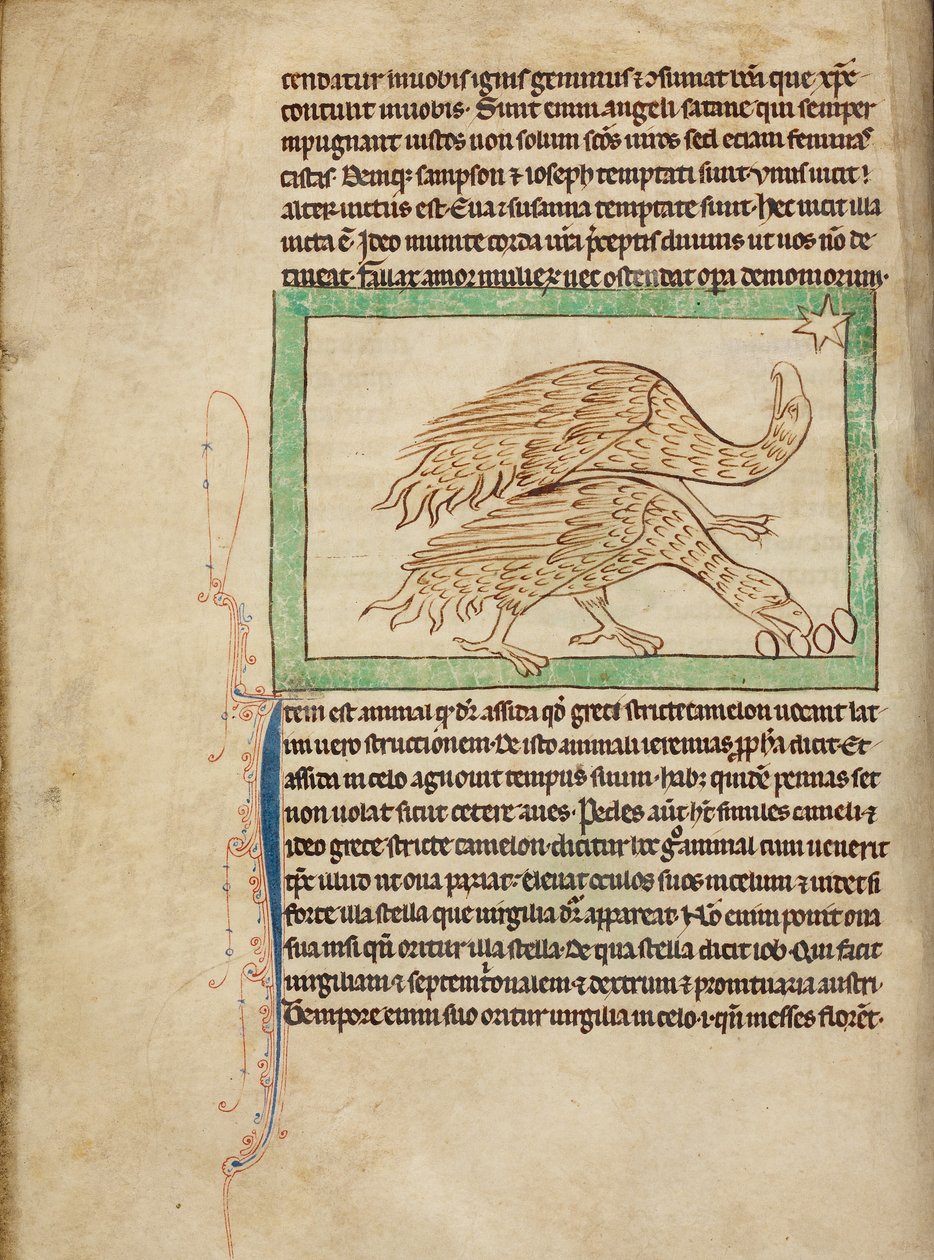 cendatur in uobis ignis geminus ⁊ ɔsumat bõa que xp̃c
contulit in uobis. Sunt enim angeli satane qui semper
inpugnant iustos non solum sc̃os uiros sed eciam feminas
castas. Deniq; sampson ⁊ ioseph temptati sunt. vnus uicit!
alter uictus est. Eua ⁊ susanna temptate sunt. hec uicit illa
uicta ẽ. Ideo munite corda ur̃i p̃ceptis diuinis ut uos nõ de
tineat. fallax amor mulieꝝ nec ostendat op̃a demoniorum.
Item est animal qd̃ dr̃ assida qd̃ greci strictecamelon uocant lat
ini uero structionem. De isto animali ieremias ꝓph̃a dicit. Et
assida in celo agnouit tempus suum. habꝫ quidẽ pennas set
non uolat sicut cetere aues. Pedes aũt hꝫ similes cameli. ⁊
ideo grece stricte camelon dicitur hoc gͦ animal cum uenerit
tp̃c illud ut oua pariat. eleuat oculos suos in celum ⁊ uidet si
forte illa stella que uirgilia dr̃ appareat. Nõ enim ponit oua
sua nisi qñ oritur illa stella. De qua stella dicit iob. Qui facit
uirgiliam. ⁊ septemt̃onalem. ⁊ dextrum ⁊ promtuaria austri.
Tempore enim suo oritur uirgilia in celo. i. qñ messes florẽt.